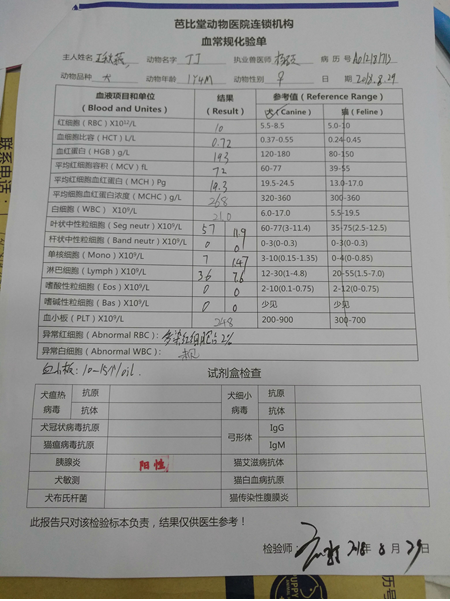 芭比堂动物医院连锁机构
血常规化验单
主人姓名 动物名字 丁丁 执业兽医师 病历号
动物品种 犬 动物年龄 1Y4M 动物性别 ♀ 日期 2018.8.29
血液项目和单位 (Blood and Unites) 结果 (Result) 参考值 (Reference Range) 犬(Canine) 猫(Feline)
红细胞(RBC)X10¹²/L 10 5.5-8.5 5.0-10
血细胞比容(HCT)L/L 0.72 0.37-0.55 0.24-0.45
血红蛋白(HGB)g/L 193 120-180 80-150
平均红细胞容积(MCV)fL 72 60-77 39-55
平均红细胞血红蛋白(MCH)Pg 19.3 19.5-24.5 13.0-17.0
平均细胞血红蛋白浓度(MCHC)g/L 268 320-360 300-360
白细胞(WBC) X10⁹/L 21.0 6.0-17.0 5.5-19.5
叶状中性粒细胞(Seg neutr)X10⁹/L 57 11.9 60-77(3-11.4) 35-75(2.5-12.5)
杆状中性粒细胞(Band neutr)X10⁹/L 0 0 0-3(0-0.3) 0-3(0-0.3)
单核细胞(Mono)X10⁹/L 7 1.47 3-10(0.15-1.35) 0-4(0-0.85)
淋巴细胞(Lymph)X10⁹/L 36 7.6 12-30(1-4.8) 20-55(1.5-7.0)
嗜酸性粒细胞(Eos)X10⁹/L 0 0 2-10(0.1-0.75) 2-12(0-0.75)
嗜碱性粒细胞(Bas)X10⁹/L 0 0 少见 少见
血小板(PLT)X10⁹/L 248 200-900 300-700
异常红细胞(Abnormal RBC): 多染红细胞占2%
异常白细胞(Abnormal WBC):
血小板:10~15个/oil.
试剂盒检查
犬瘟热病毒 抗原 犬细小病毒 抗原
抗体 抗体
犬冠状病毒抗原 弓形体 IgG
猫瘟病毒抗原 IgM
胰腺炎 阳性 猫艾滋病抗体
犬敏测 猫白血病抗原
犬布氏杆菌 猫传染性腹膜炎
此报告只对该检验标本负责,结果仅供医生参考!
检验师: 2018年8月29日
联系电话:
PUPPY
历号